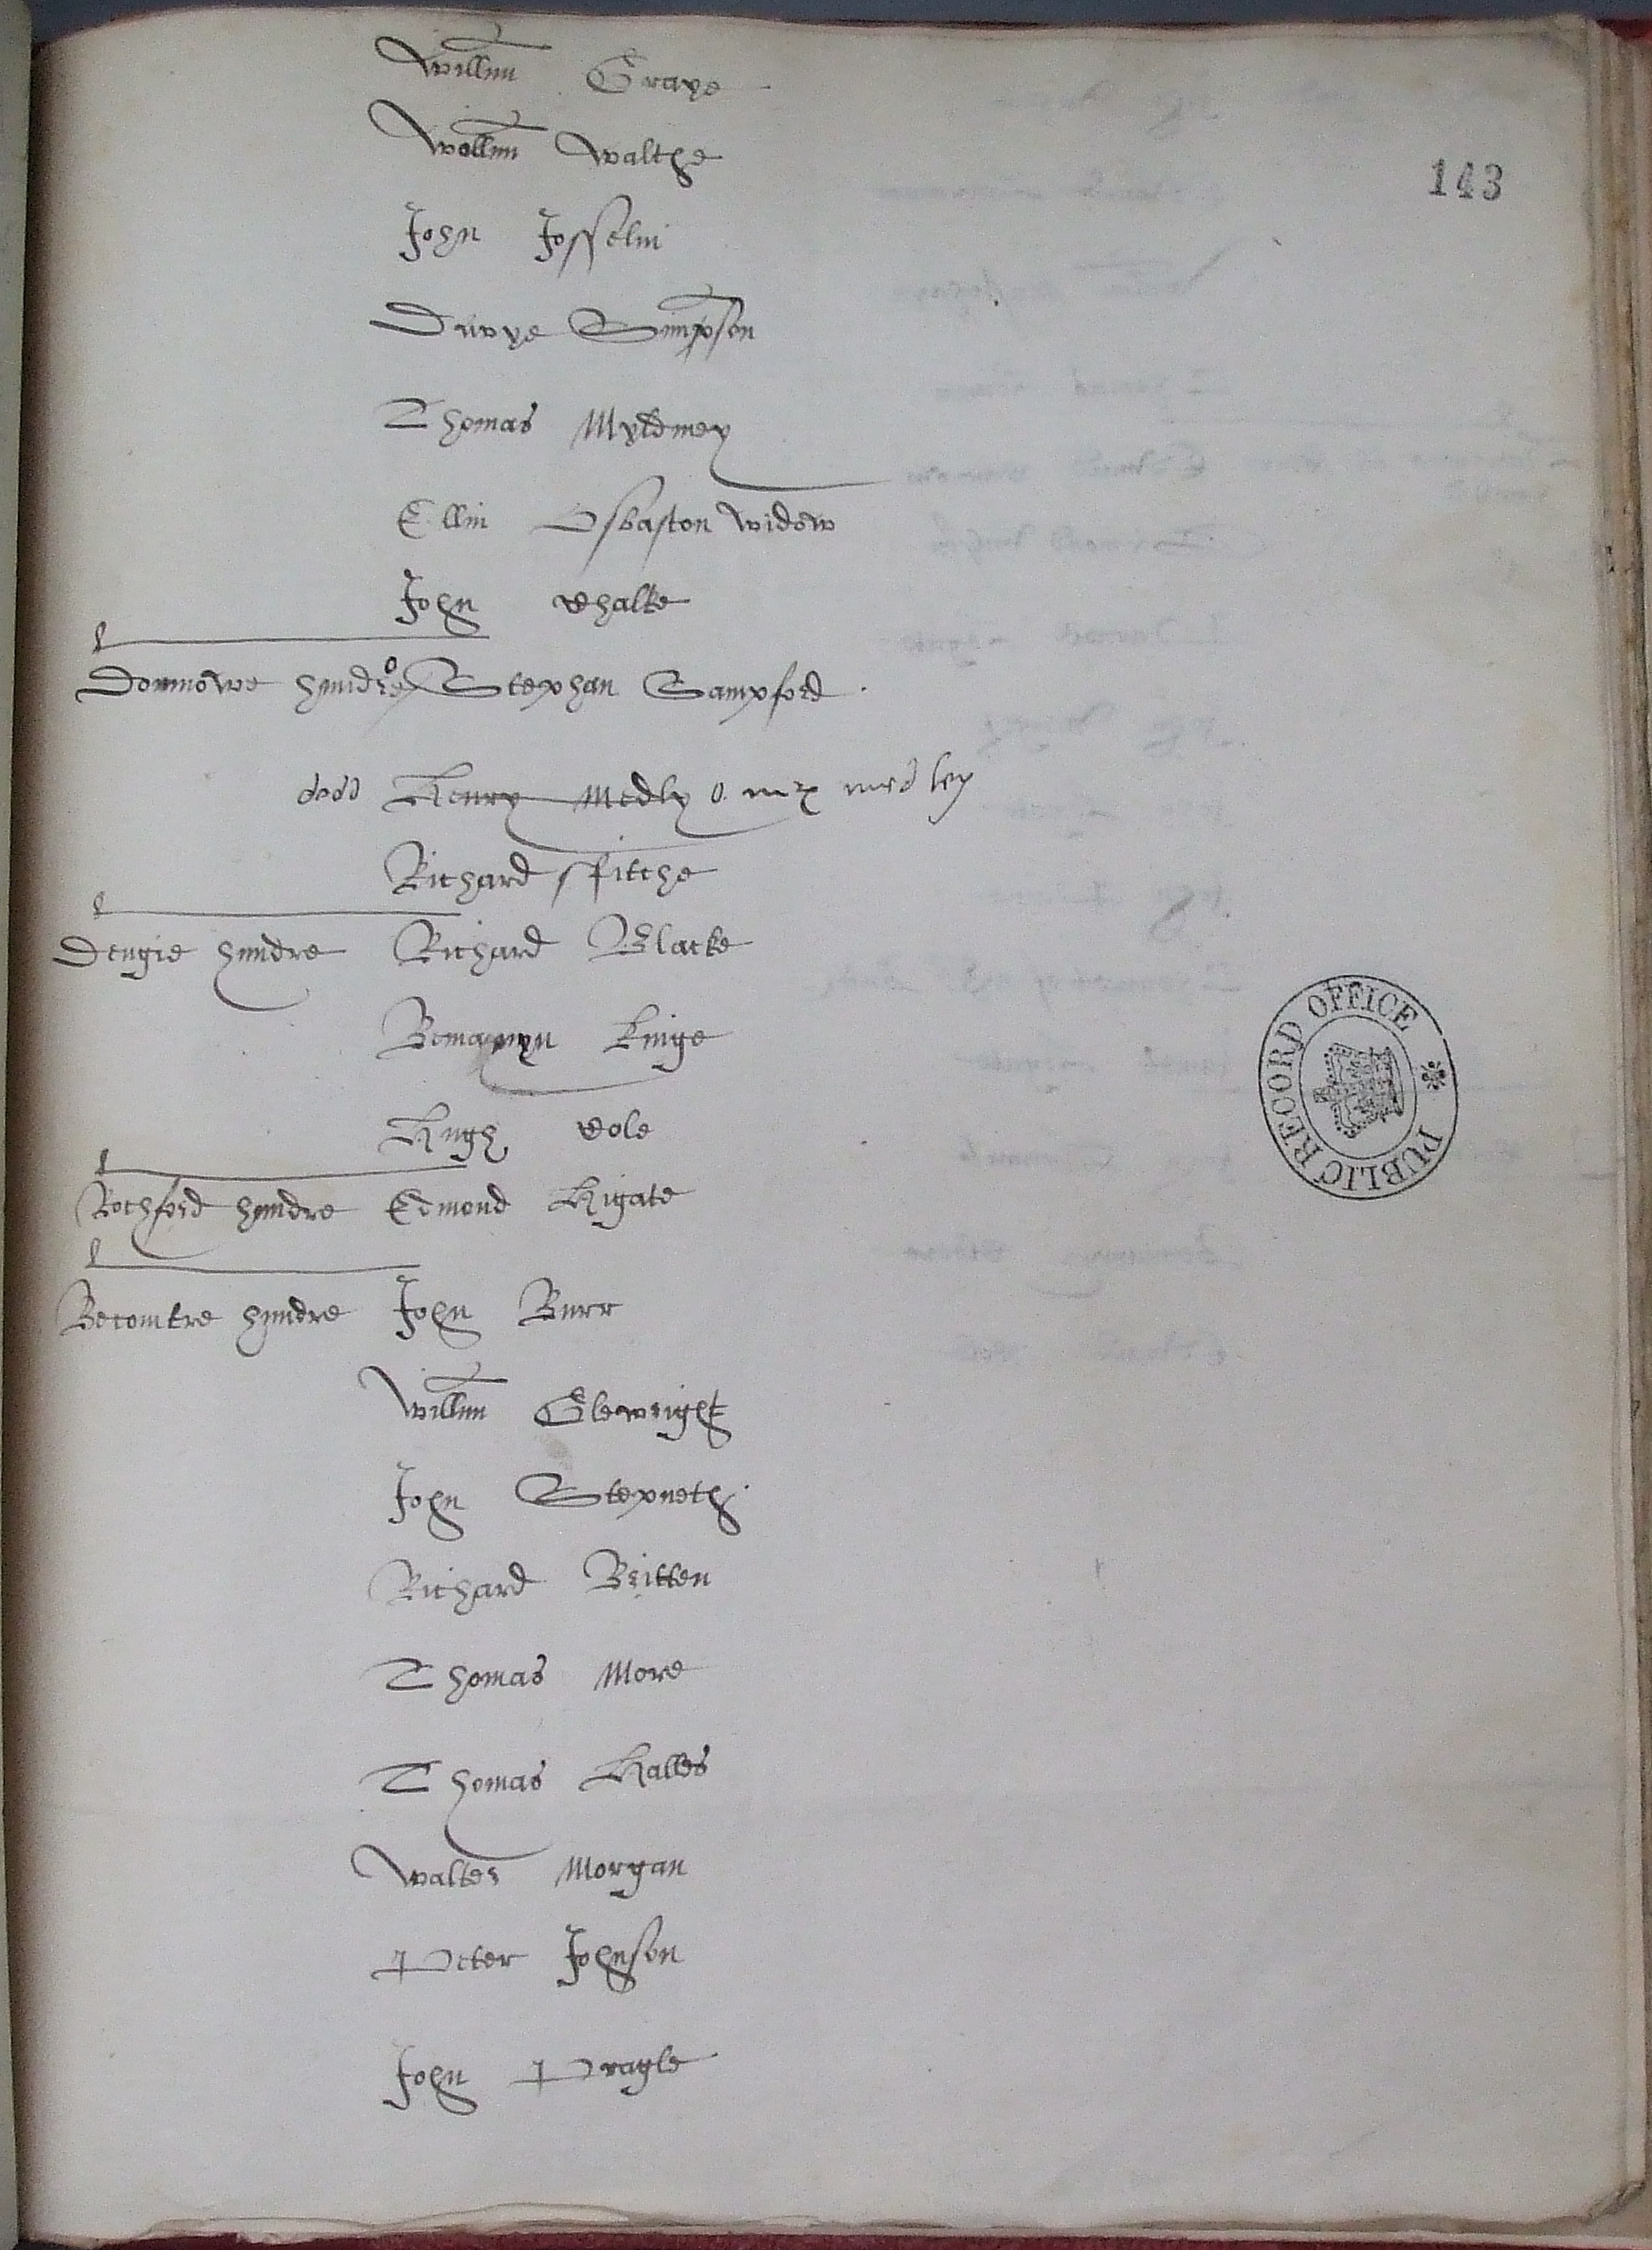 Willm Graye
143
Wollm Walthe
John Josselin
Druye Simpson
Thomas Myldmey
Ellin Osbaston widow
John Chalke
Donmowe hundre o Stephan Sampford
ded Henry Medly o mr medley
Richard ffitche
Dengie hundre Richard Blacke
Beniamyn Kinge
Hugh Cole
Rochford hundre Edmond Higate
Becomtre hundre John Burr
Willm Clewright
John Stepneth
Richard Britten
Thomas More
Thomas Halles
Walter Morgan
Peter Johnson
John Pragle
PUBLIC RECORD OFFICE